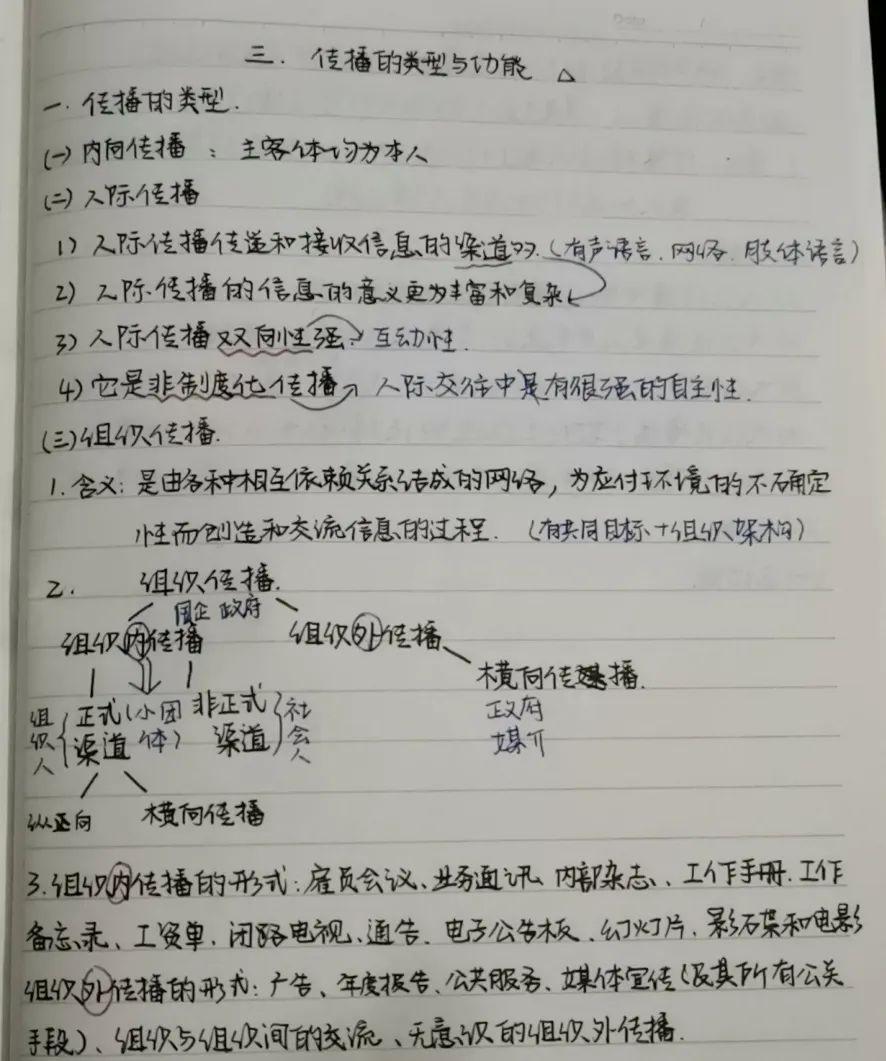 三. 传播的类型与功能 △
一. 传播的类型.
(一) 内向传播 : 主客体均为本人
(二) 人际传播
1) 人际传播传递和接收信息的渠道多.(有声语言. 网络. 肢体语言)
2) 人际传播的信息的意义更为丰富和复杂
3) 人际传播双向性强→互动性.
4) 它是非制度化传播→人际交往中是有很强的自主性.
(三)组织传播.
1.含义: 是由各种相互依赖关系结成的网络, 为应付环境的不确定
性而创造和交流信息的过程. (有共同目标+组织架构)
2. 组织传播.
国企 政府
组织内传播 组织外传播
横向传播.
组织人 正式渠道 (小团体) 非正式渠道 社会人
政府
媒介
纵向 横向传播
3.组织内传播的形式: 雇员会议、业务通讯 内部杂志、工作手册. 工作
备忘录、工资单. 闭路电视、通告. 电子公告板、幻灯片. 和电影
组织外传播的形式: 广告、年度报告、公共服务、媒体宣传(及其所有公关
手段)、组织与组织间的交流、无意识的组织外传播.